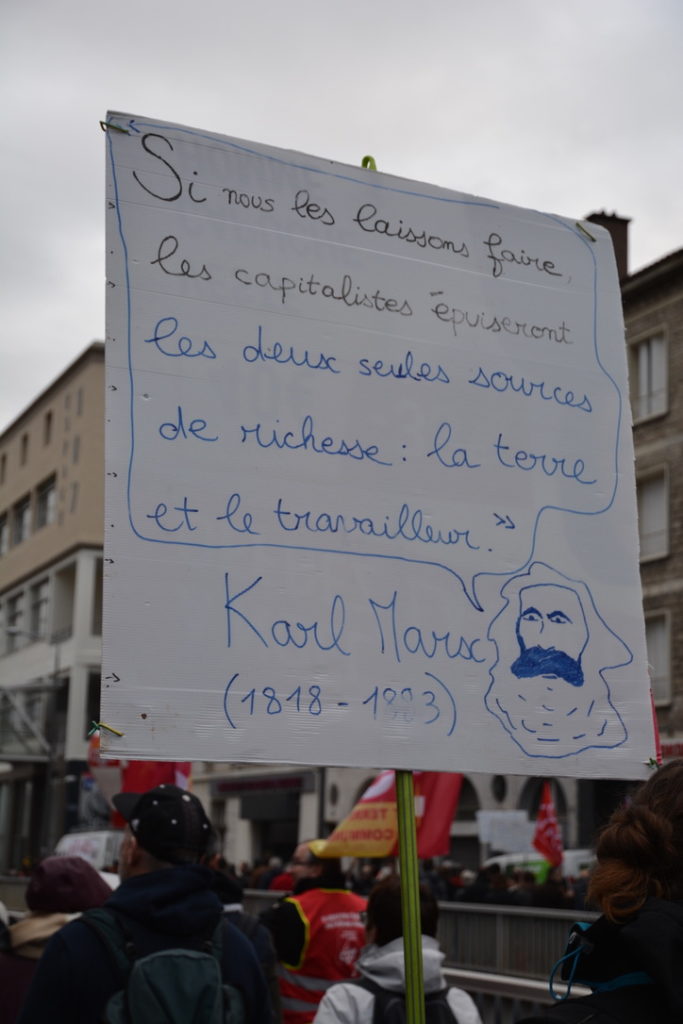 Si nous les laissons faire,
les capitalistes épuiseront
les deux seules sources
de richesse : la terre
et le travailleur. »
Karl Marx
(1818 - 1883)